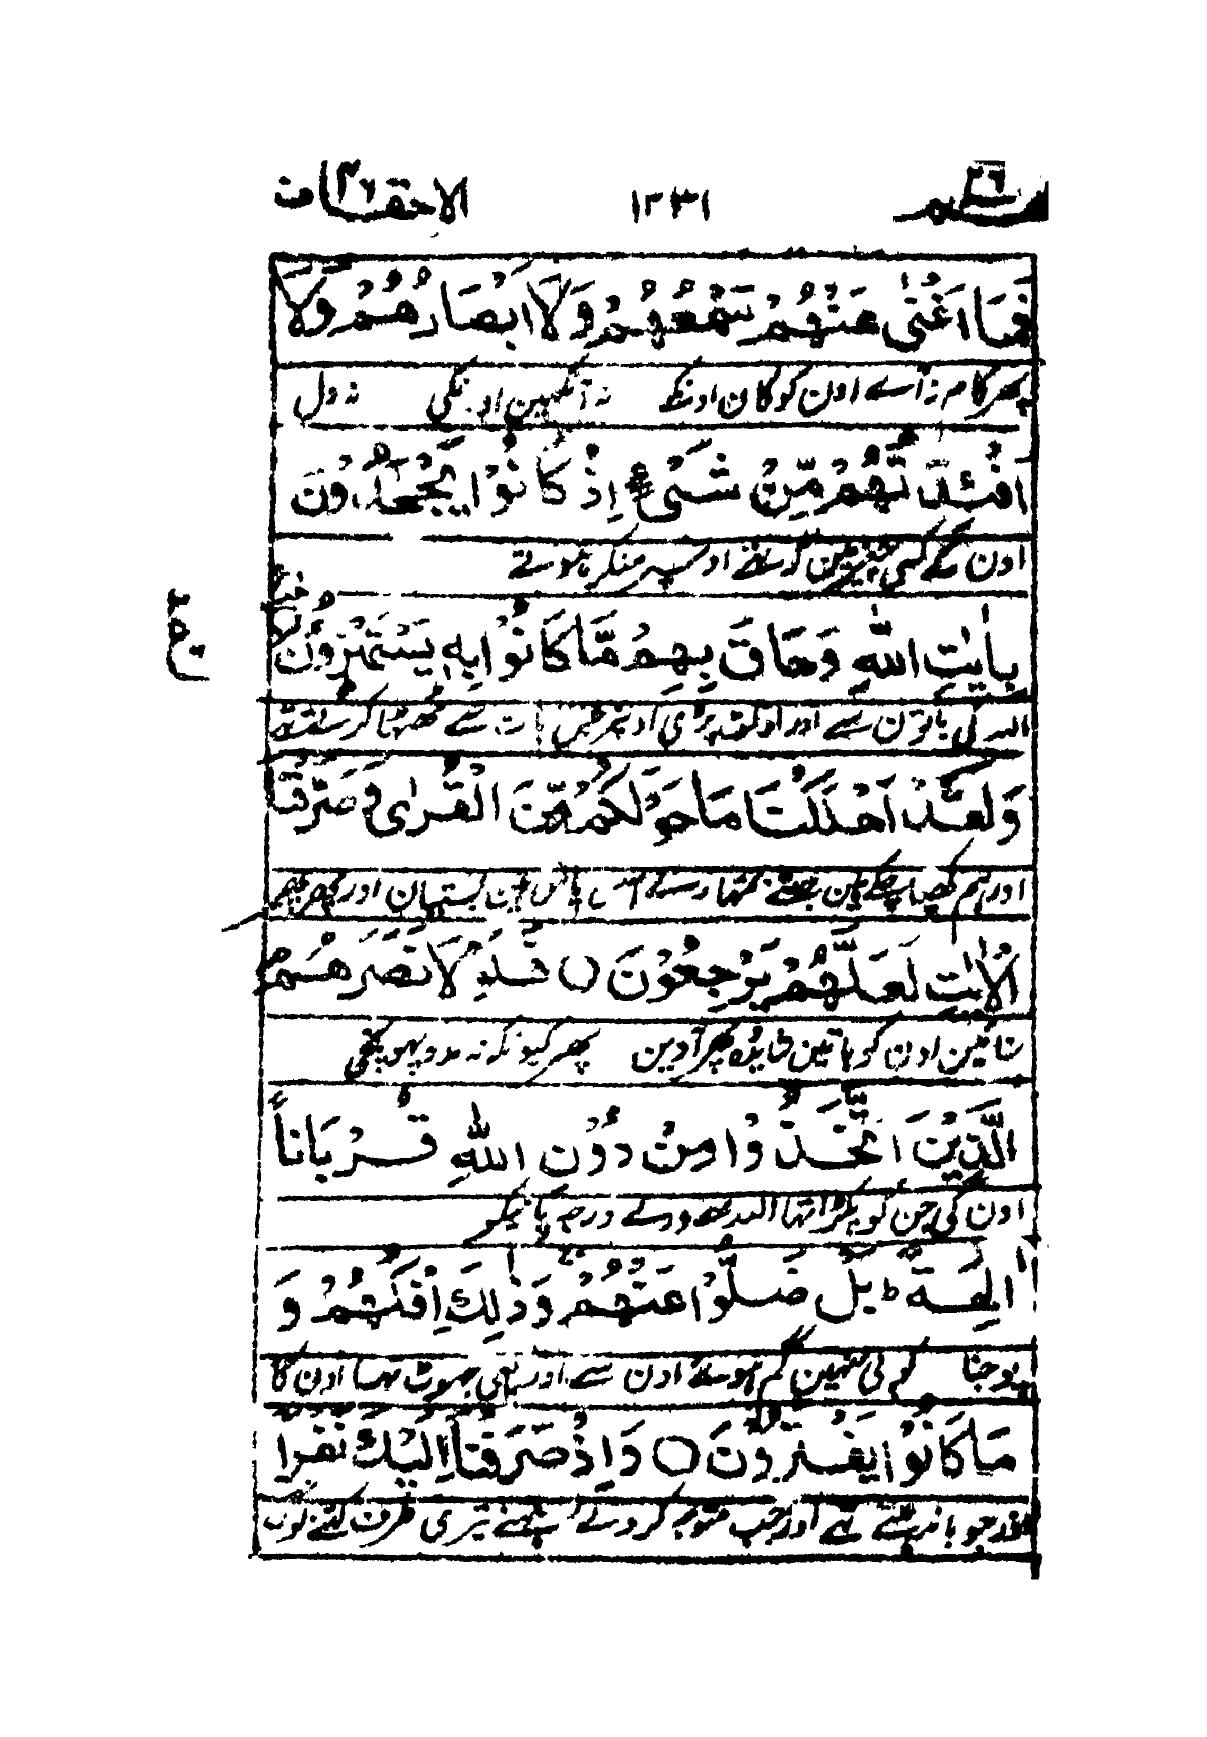 حٰم ٢٦ ١٣٣١ الاحقاف ٤٦
فَمَا اَغْنٰى عَنْهُمْ سَمْعُهُمْ وَلَا اَبْصَارُهُمْ وَلَا
پھر کام نہ آے اون کو کان اونکے نہ آنکھین اونکی نہ دل
اَفْئِدَتُهُمْ مِّنْ شَىْءٍ اِذْ كَانُوْا يَجْحَدُوْنَ
اون کے کسی چیز مین اوسلئے منکر ہوتے
بِاٰيٰتِ اللّٰهِ وَحَاقَ بِهِمْ مَّا كَانُوْا بِهٖ يَسْتَهْزِءُوْنَ
اللہ کی باتون سے اور پڑی بات سے ٹھٹھا کرتے تھے
وَلَقَدْ اَهْلَكْنَا مَا حَوْلَكُمْ مِّنَ الْقُرٰى وَصَرَّفْنَا
اور ہم کھپا چکے ہین جتنے تمہارے آس پاس ہین بستیان اور پھیر
الْاٰيٰتِ لَعَلَّهُمْ يَرْجِعُوْنَ ○ فَلَوْلَا نَصَرَهُمْ
سنائین اون کو باتین شاید وہ پھر آوین پھر کیون نہ مدد پہونچی
الَّذِيْنَ اتَّخَذُوْا مِنْ دُوْنِ اللّٰهِ قُرْبَانًا
اون کی جن کو پکڑا تھا اللہ سے ورے درجہ پانیکو
اٰلِهَةً ط بَلْ ضَلُّوْا عَنْهُمْ وَذٰلِكَ اِفْكُهُمْ وَ
پوجنا کوئی نہین گم ہوگئے اون سے اور یہی جھوٹ تھا اون کا
مَا كَانُوْا يَفْتَرُوْنَ ○ وَاِذْ صَرَفْنَا اِلَيْكَ نَفَرًا
اور جو باندھتے تھے اور جب متوجہ کردئے ہمنے تیری طرف کتنے لوگ